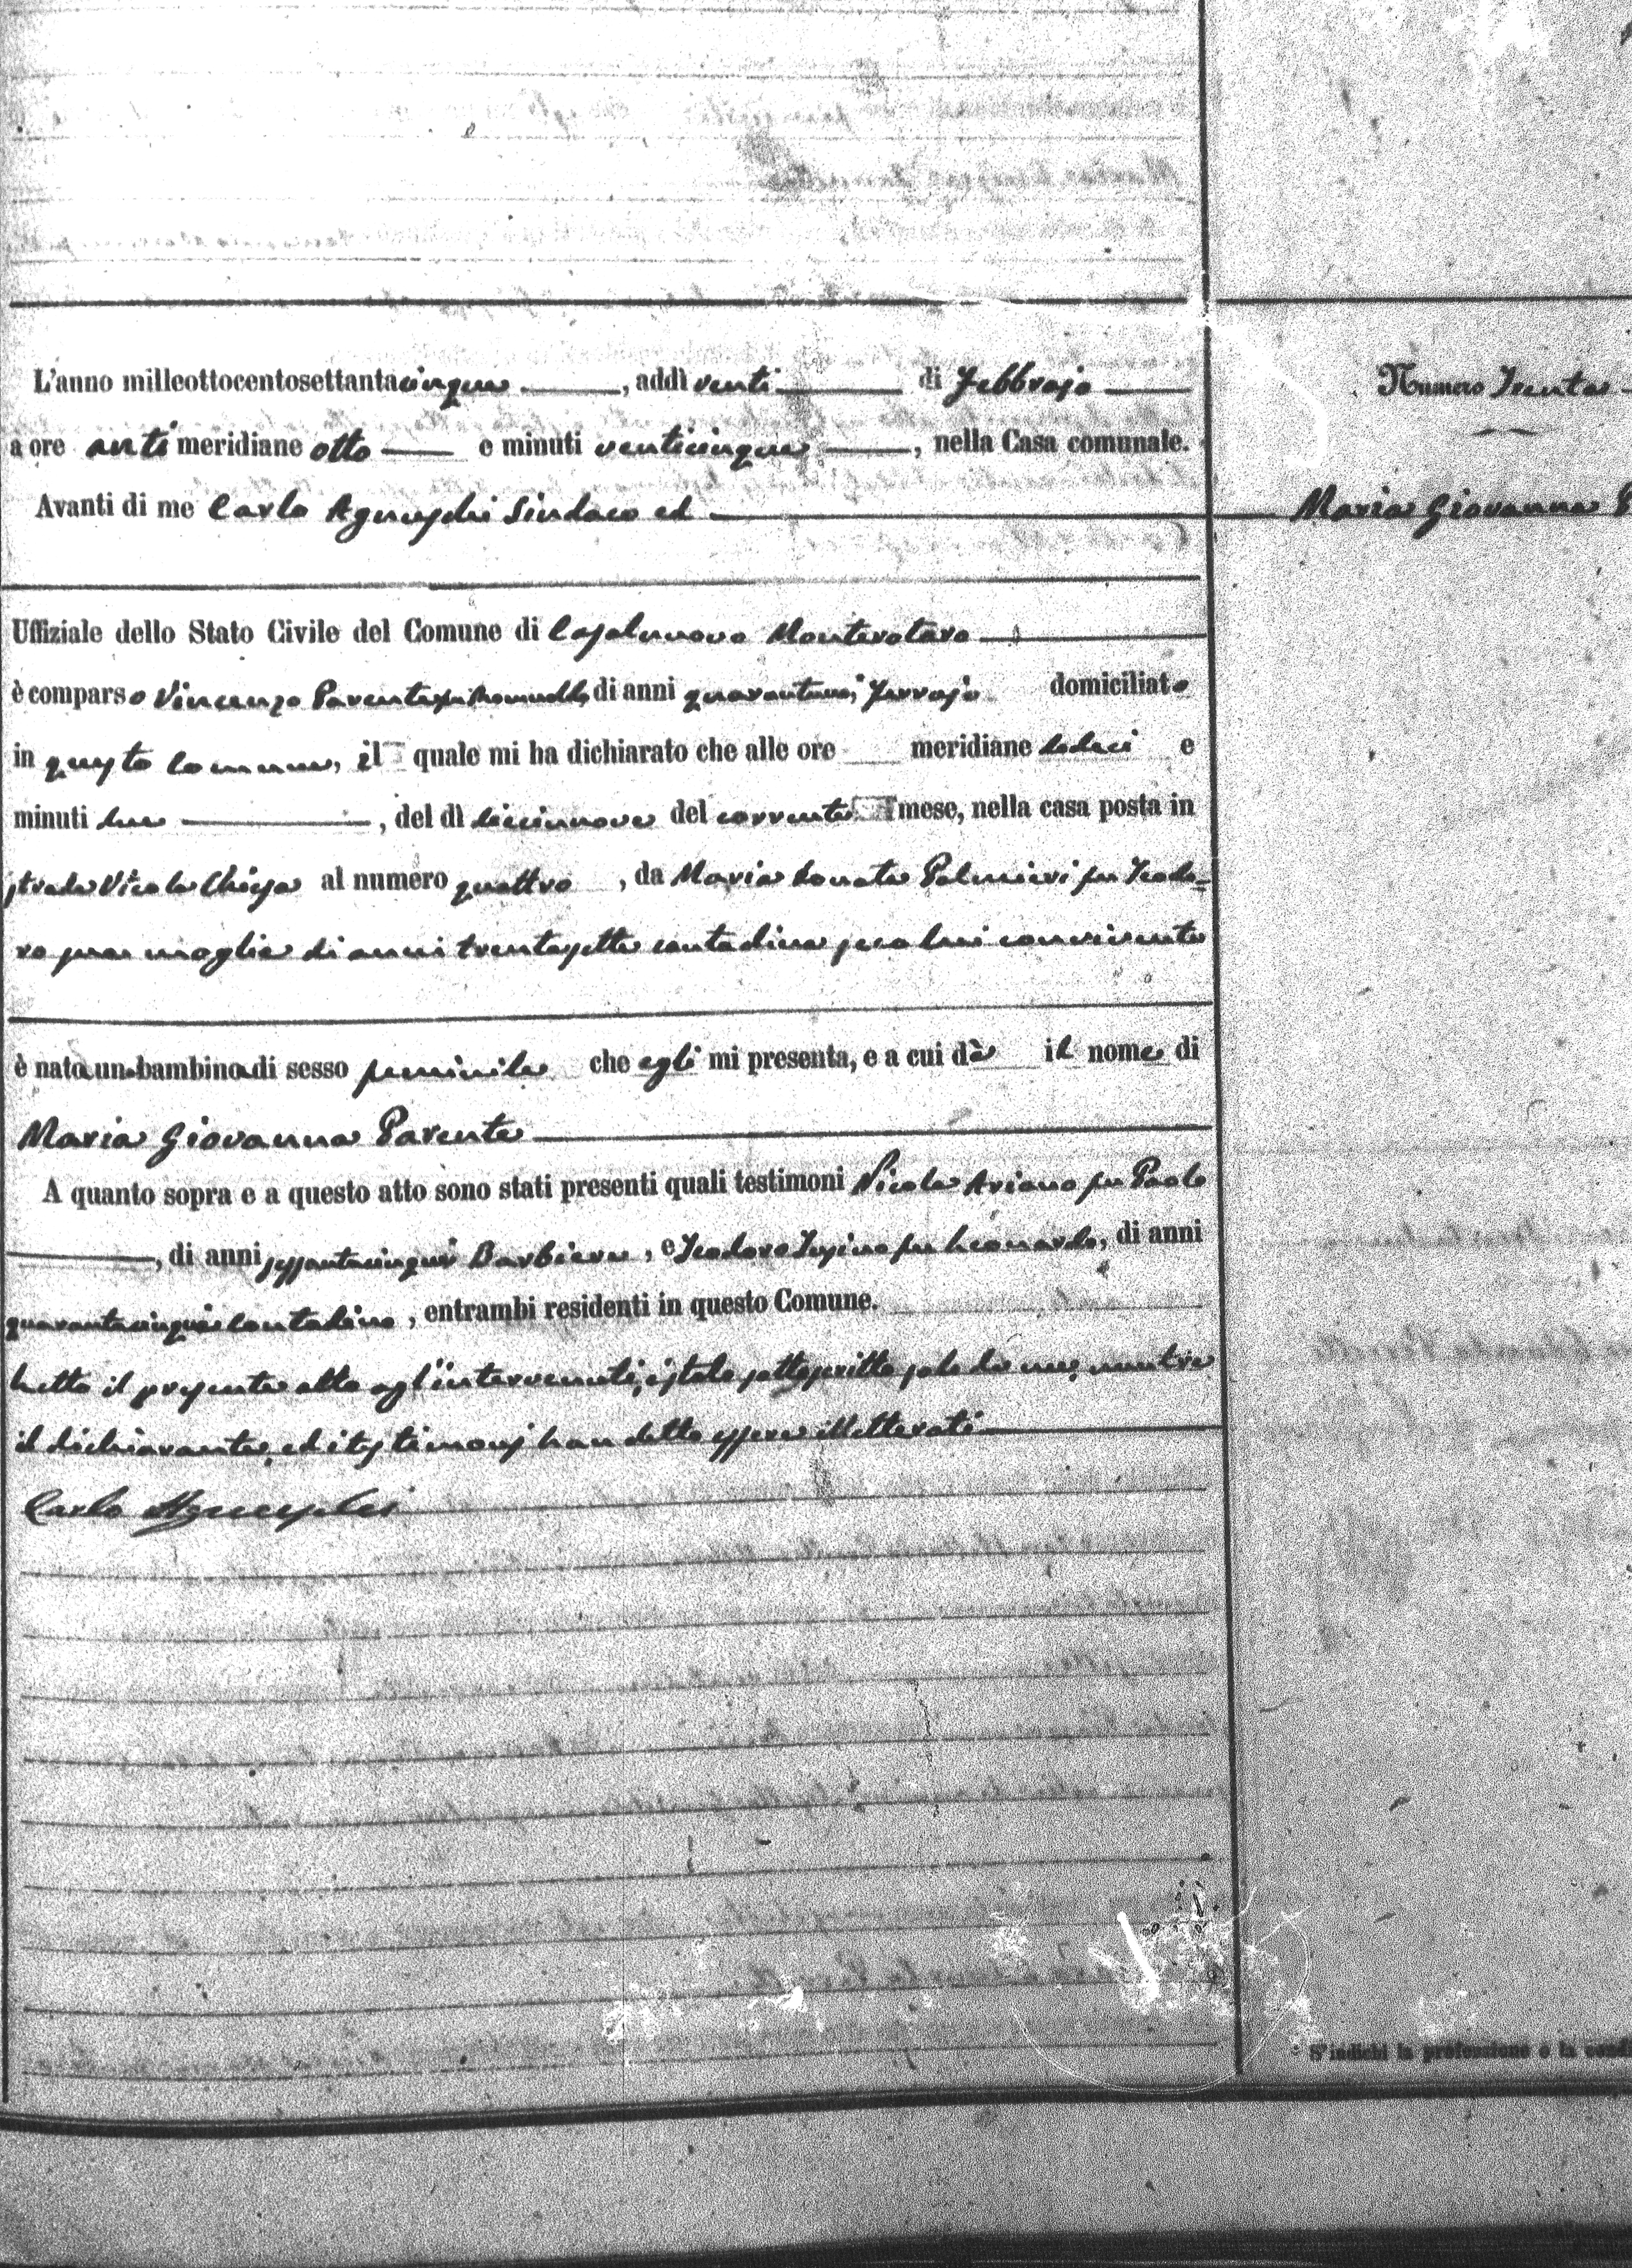 L'anno milleottocentosettantacinque, addì venti di Febbrajo
a ore antimeridiane otto e minuti venticinque, nella Casa comunale.
Avanti di me Carlo Sindaco ed
Uffiziale dello Stato Civile del Comune di Casalnuovo Monterotaro
è comparso Vincenzo Parente fu Romualdo, di anni quarantuno, Ferrajo domiciliato
in questo Comune, il quale mi ha dichiarato che alle ore meridiane dodici e
minuti due, del dì diciannove del corrente mese, nella casa posta in
strada Vico la Chiesa al numero quattro, da Maria Donata Palmieri fu Teodo-
ro sua moglie di anni trentasette contadina seco lui convivente
è nata una bambina di sesso feminile che egli mi presenta, e a cui dà il nome di
Maria Giovanna Parente
A quanto sopra e a questo atto sono stati presenti quali testimoni Nicola Ariano fu Paolo
, di anni sessantacinque Barbiere, e Teodoro fu Leonardo, di anni
quarantacinque contadino, entrambi residenti in questo Comune.
Letto il presente atto agl'intervenuti, è stato sottoscritto solo da me, mentre
il dichiarante, ed i testimonj han detto essere illetterati
Carlo
Numero Trenta
Maria Giovanna P
S'indichi la professione o la condi